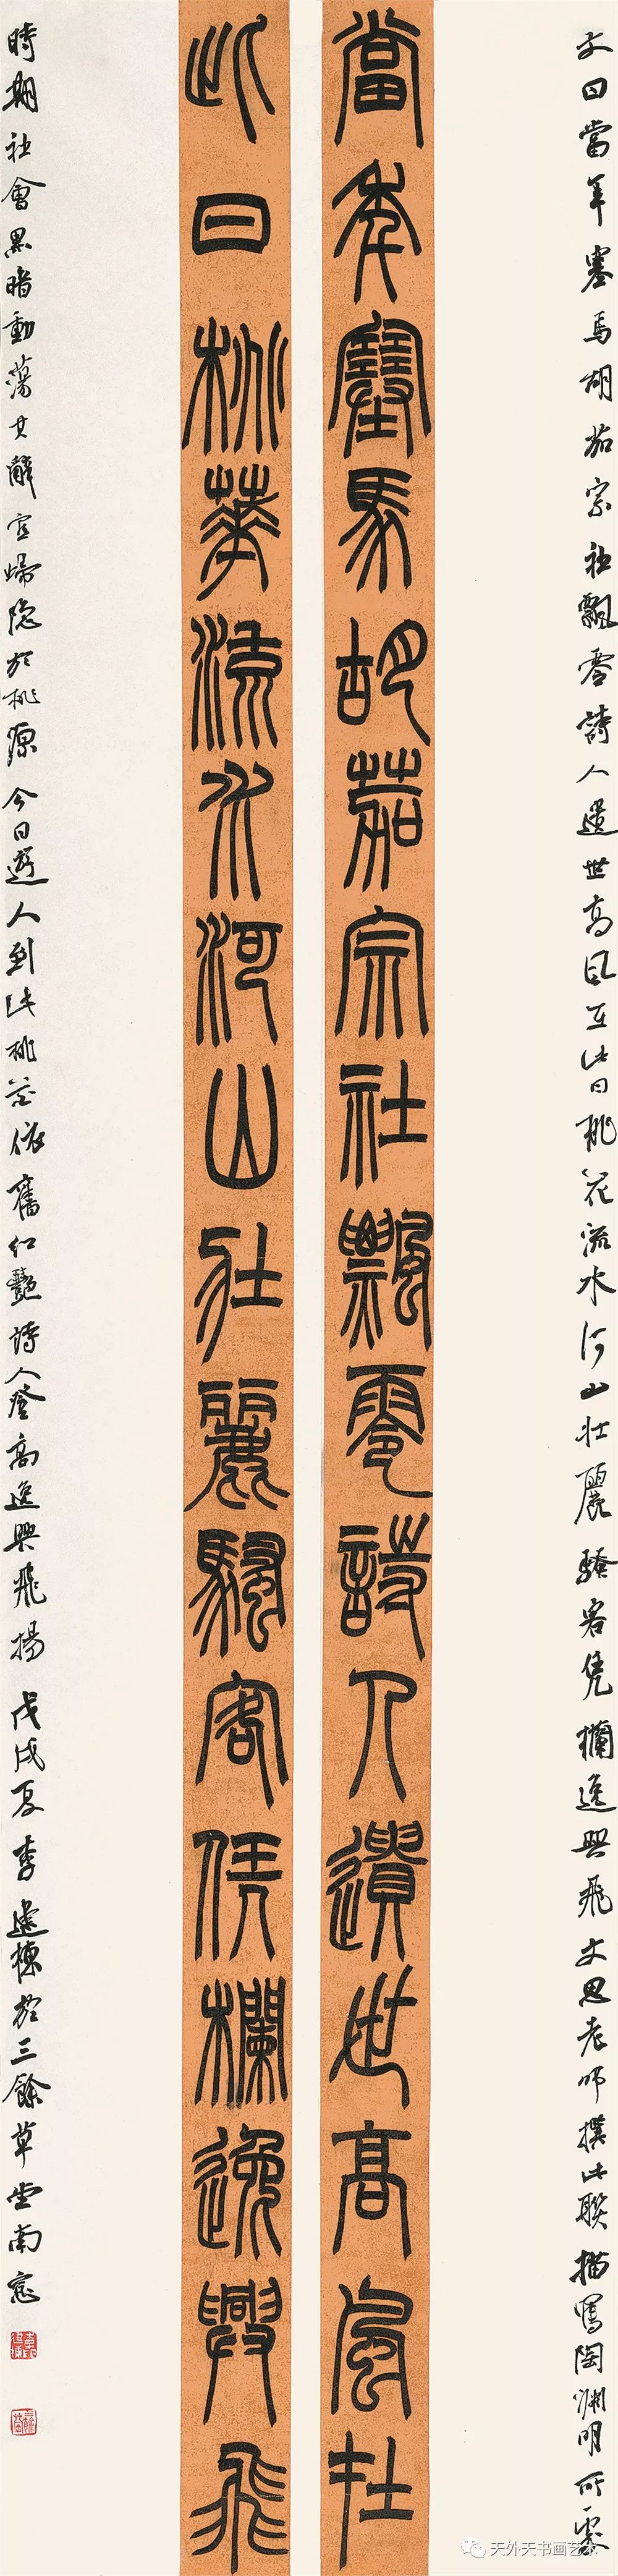 文曰當年塞馬胡茄宗社飄零詩人遺世高風在此日桃花流水河山壯麗騷客凭欄逸興飛文思老師撰此聯描寫陶淵明所處
當年塞馬胡茄宗社飄零詩人遺世高風在
此日桃華流水河山壯麗騷客凭欄逸興飛
時期社會黑暗動蕩其辭官歸隐於桃源今日遊人到此桃花依舊紅艷詩人登高逸興飛揚戊戌夏李建德於三餘草堂南窗
天外天书画艺术